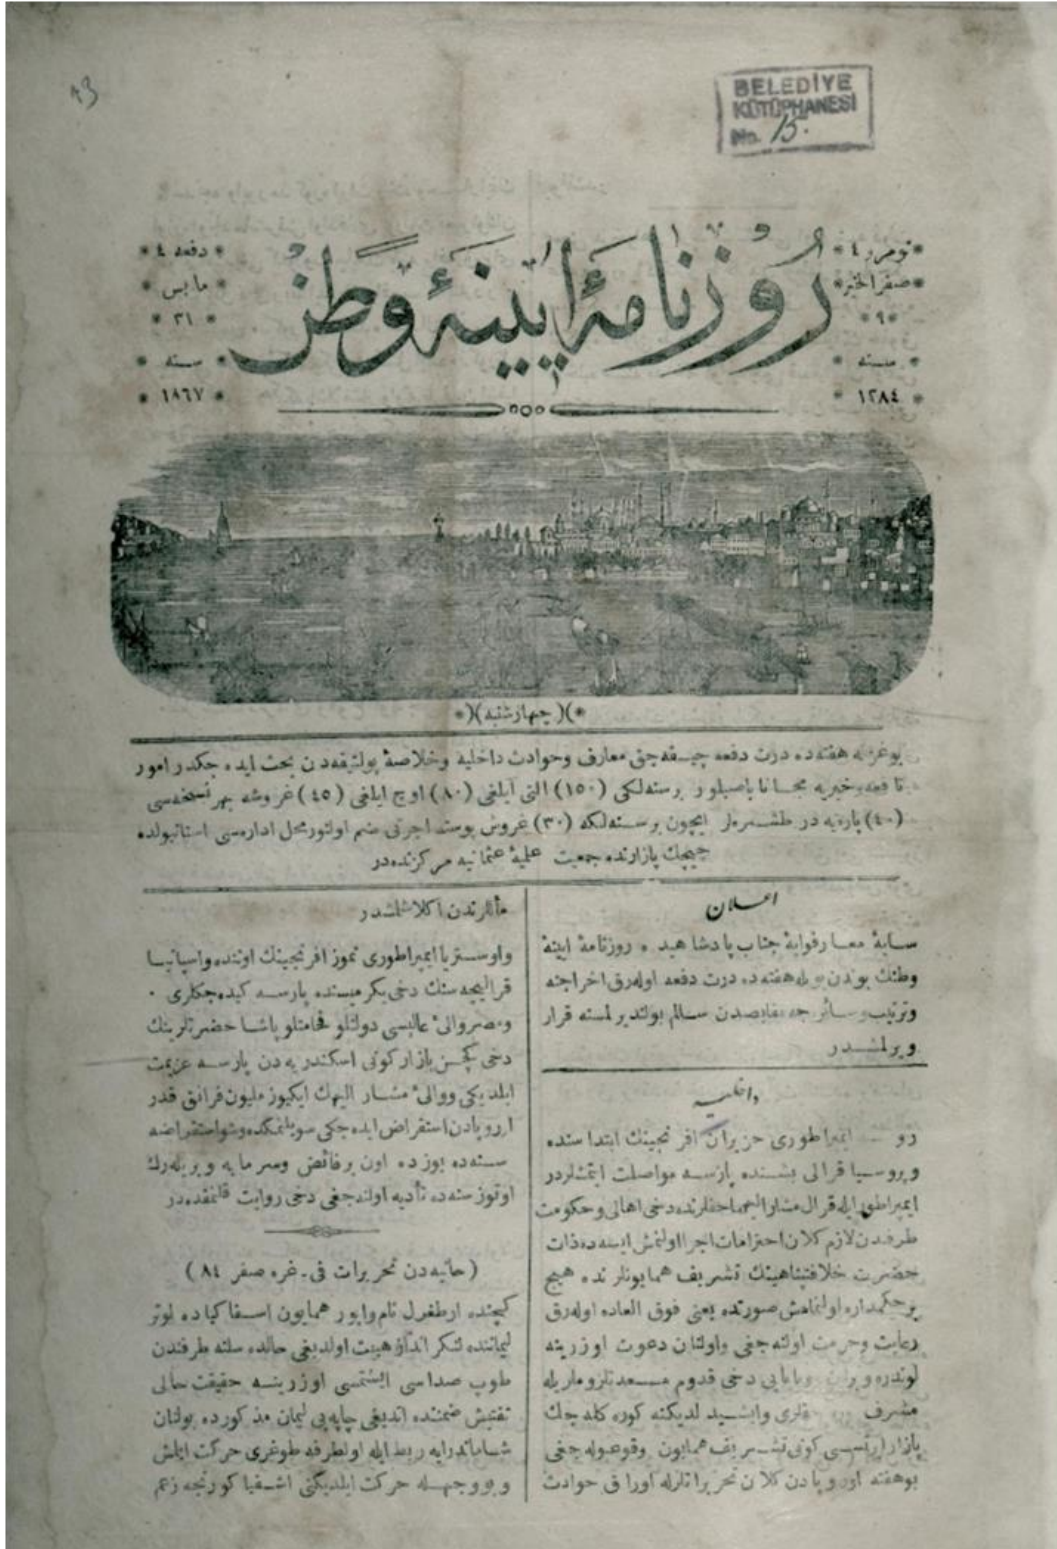 43
BELEDİYE
KÜTÜPHANESİ
No. 15.
نومرو ٤
صفر الخير
٩
سنه
١٢٨٤
روزنامهٔ ايينهٔ وطن
دفعه ٤
مايس
٣١
سنه
١٨٦٧
(چهارشنبه)
بو غزته هفته‌ده درت دفعه چيقه‌جق معارف وحوادث داخليه وخلاصهٔ پولتيقه‌دن بحث ايده جكدر امور
نافعه وخيريه مجانا باصيلور برسنه‌لكى (١٥٠) التى آيلغى (٨٠) اوچ ايلغى (٤٥) غروشه بهر نسخه‌سى
(٤٠) پاره‌يه در طشره‌لر ايچون برسنه‌لكه (٣٠) غروش پوسته اجرتى ضم اولنور محل اداره‌سى استانبولده
چيچك پازارنده جمعيت علميهٔ عثمانيه مركزنده‌در
اعلان
سايهٔ معارفوايهٔ جناب پادشاهيده روزنامهٔ ايينهٔ
وطنك بوندن بويله هفته‌ده درت دفعه اوله‌رق اخراجنه
وترتيب وسائر جه نقايصدن سالم بولنديرلمسنه قرار
ويرلمشدر
داخليه
ايمپراطورى حزيران افرنجينك ابتداسنده
وپروسيا قرالى بشنده پارسه مواصلت ايتمشلردر
ايمپراطور ايله قرال مشار اليهما حقلرنده دخى اهالى وحكومت
طرفندن لازم كلان احترامات اجرا اولنمش ايسه‌ده ذات
حضرت خلافتپناهينك تشريف همايونلرنده هيچ
برحكمداره اولنمامش صورتده يعنى فوق العاده اوله‌رق
رعايت وحرمت اولنه‌جغى واولنان دعوت اوزرينه
لوندره دخى قدوم
مشرف كوره كله‌جك
پازار ايرتسى كونى تشريف همايون وقوعبوله‌جغى
بوهفته اوروپادن كلان تحريراتلرله اوراق حوادث
مآللرندن اكلاشلمشدر
واوستريا ايمپراطورى تموز افرنجينك اوننده واسپانيا
قراليچه‌سنك دخى يكرميسنده پارسه كيده‌جكلرى
ومصر والئ عاليسى دولتلو فخامتلو پاشا حضرتلرينك
دخى كچن پازار كونى اسكندريه‌دن پارسه عزيمت
ايلديكى ووالئ مشار اليهك ايكيوز مليون فرانق قدر
اروپادن استقراض ايده‌جكى سويلنمكده وشو استقراضه
سنه‌ده يوزده اون بر فائض وسرمايه ويريله‌رك
اوتوز سنه‌ده تأديه اولنه‌جغى دخى روايت قلنمقده‌در
(حانيه‌دن تحريرات فى غره صفر ٨٤)
كچنده ارطغرل نام واپور همايون اسفاكياده لوتر
ليماننده لنكر انداز هيبت اولديغى حالده طرفندن
طوپ صداسى ايشتمسى اوزرينه حقيقت حالى
تفتيش ضمننده انديغى چاپه‌يى ليمان مذكورده بولنان
شاماندرايه ربط ايله اولطرفه طوغرى حركت ايلمش
وبو وجهله حركت ايلديكنى اشقيا كورنجه زعم